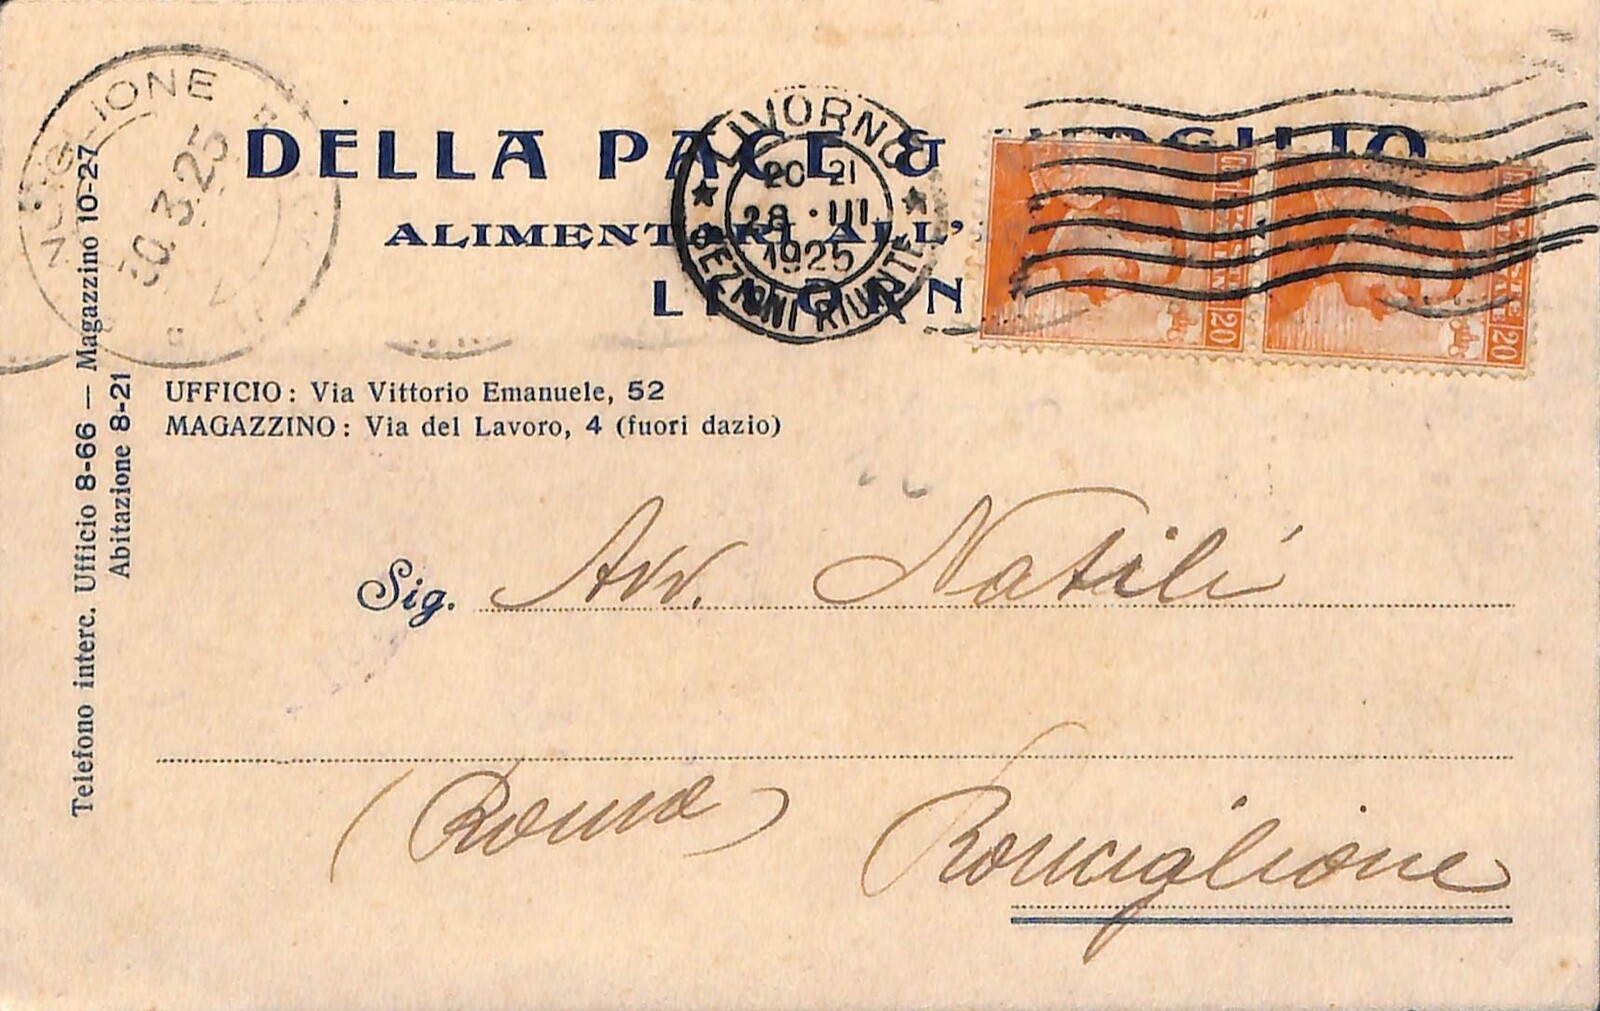 DELLA PACE & VIRGILIO
ALIMENTARI ALL'
LIVORNO
LIVORNO
20-21
28·III
1925
SEZIONI RIUNITE
30.3.25
20
20
UFFICIO: Via Vittorio Emanuele, 52
MAGAZZINO: Via del Lavoro, 4 (fuori dazio)
Telefono interc. Ufficio 8-66 — Magazzino 10-27
Abitazione 8-21
Sig. Avv. Natili
(Roma) Ronciglione